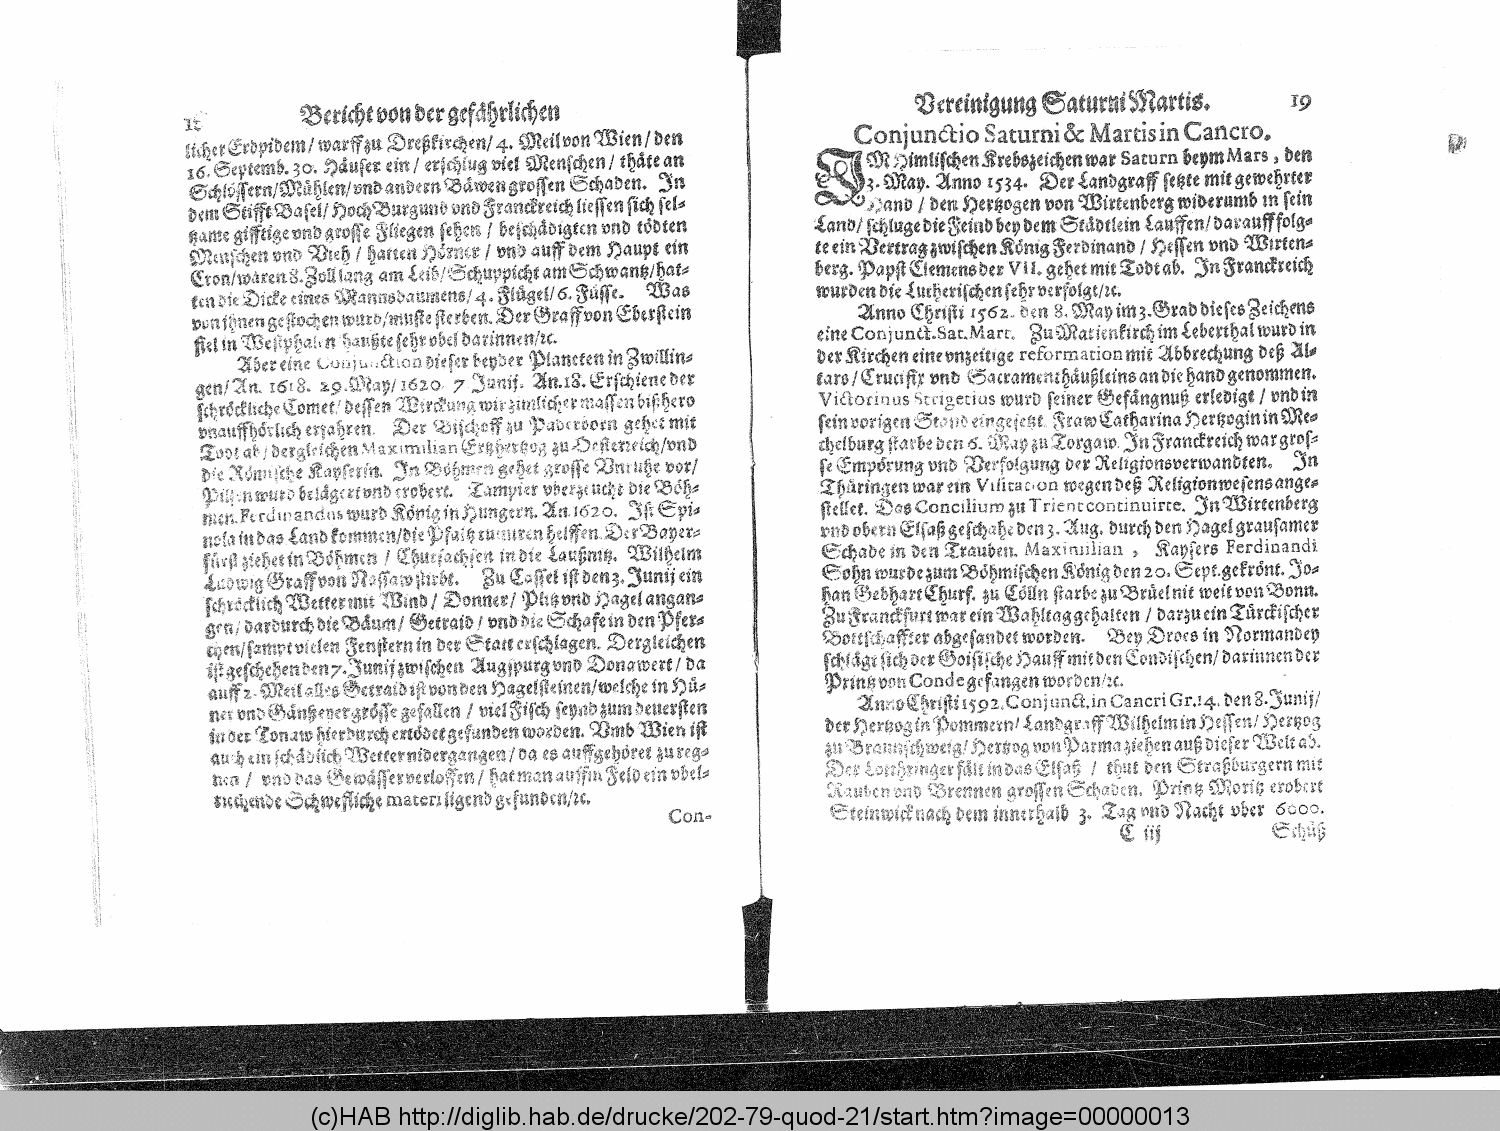 Bericht von der gefährlichen
licher Erdpidem/ warff zu Dreßkirchen/ 4. Meil von Wien/ den
16. Septemb. 30. Häuser ein/ erschlug viel Menschen/ thäte an
Schlössern/Mühlen/vnd andern Bäwen grossen Schaden. In
dem Stifft Basel/ Hoch Burgund vnd Franckreich liessen sich sel-
tzame gifftige vnd grosse Fliegen sehen / beschädigten vnd tödten
Menschen vnd Vieh / hatten Hörner / vnd auff dem Haupt ein
Cron/waren 8. Zoll lang am Leib/ Schuppicht am Schwantz/hat-
ten die Dicke eines Mannsdaumens/ 4. Flügel/ 6. Füsse. Was
von ihnen gestochen wurd/muste sterben. Der Graff von Eberstein
fiel in Westphalen haußte sehr vbel darinnen/ꝛc.
Aber eine Conjunction dieser beyder Planeten in Zwillin-
gen/ An. 1618. 29. May/ 1620 7 Junij. An. 18. Erschiene der
schröckliche Comet/ dessen Wirckung wir zimlicher massen bißhero
vnauffhörlich erfahren. Der Bischoff zu Paderborn gehet mit
Todt ab/ dergleichen Maximilian Ertzhertzog zu Oesterreich/vnd
die Römische Kayserin. In Böhmen gehet grosse Vnruhe vor/
Pilsen wurd belägert vnd erobert. Tampier vberzeucht die Böh-
men. Ferdinandus wurd König in Hungern. An. 1620. Ist Spi-
nola in das Land kommen/die Pfaltz ruiniren helffen. Der Bayer-
fürst ziehet in Böhmen / Chursachsen in die Laußnitz. Wilhelm
Ludwig Graff von Nassaw stirbt. Zu Cassel ist den 3. Junij ein
schröcklich Wetter mit Wind/ Donner/ Plitz vnd Hagel angan-
gen/ dardurch die Bäum/ Getraid/ vnd die Schafe in den Pfer-
chen/sampt vielen Fenstern in der Statt erschlagen. Dergleichen
ist geschehen den 7. Junij zwischen Augspurg vnd Donawert/ da
auff 2. Meil alles Getraid ist von den Hagelsteinen/welche in Hü-
ner vnd Gäntzeyer grösse gefallen / viel Fisch seynd zum deuersten
in der Tonaw hierdurch ertödet gefunden worden. Vmb Wien ist
auch ein schädlich Wetter nidergangen/ da es auffgehöret zu reg-
nen / vnd das Gewässer verloffen/ hat man auff im Feld ein vbel-
riechende Schwefliche materi ligend gefunden/ꝛc.
Con-
Vereinigung Saturni Martis. 19
Conjunctio Saturni & Martis in Cancro.
IM Himlischen Krebszeichen war Saturn beym Mars, den
3. May. Anno 1534. Der Landgraff setzte mit gewehrter
Hand / den Hertzogen von Wirtenberg widerumb in sein
Land/ schluge die Feind bey dem Städtlein Lauffen/ darauff folg-
te ein Vertrag zwischen König Ferdinand / Hessen vnd Wirten-
berg. Papst Clemens der VII. gehet mit Todt ab. In Franckreich
wurden die Lutherischen sehr verfolgt/ꝛc.
Anno Christi 1562. den 8. May im 3. Grad dieses Zeichens
eine Conjunct. Sat. Mart. Zu Marienkirch im Leberthal wurd in
der Kirchen eine vnzeitige reformation mit Abbrechung deß Al-
tars/ Crucifix vnd Sacramenthäußleins an die hand genommen.
Victorinus Strigetius wurd seiner Gefängnuß erledigt / vnd in
sein vorigen Stand eingesetzt. Fraw Catharina Hertzogin in Me-
chelburg starbe den 6. May zu Torgaw. In Franckreich war gros-
se Empörung vnd Verfolgung der Religionsverwandten. In
Thüringen war ein Visitation wegen deß Religionwesens ange-
stellet. Das Concilium zu Trient continuirte. In Wirtenberg
vnd obern Elsaß geschahe den 3. Aug. durch den Hagel grausamer
Schade in den Trauben. Maximilian , Kaysers Ferdinandi
Sohn wurde zum Böhmischen König den 20. Sept. gekrönt. Jo-
han Gebhart Churf. zu Cölln starbe zu Brüelnit weit von Bonn.
Zu Franckfurt war ein Wahltag gehalten / darzu ein Türckischer
Bottschaffter abgesandet worden. Bey Droes in Normandey
schlägt sich der Goisische Hauff mit den Condischen/ darinnen der
Printz von Conde gefangen worden/ꝛc.
Anno Christi 1592. Conjunct. in Cancri Gr. 14. den 8. Junij/
der Hertzog in Pommern/ Landgraff Wilhelm in Hessen/ Hertzog
zu Braunschweig/ Hertzog von Parma ziehen auß dieser Welt ab.
Der Lotthringer fält in das Elsaß / thut den Straßburgern mit
Rauben vnd Brennen grossen Schaden. Printz Moritz erobert
Steinwick nach dem innerhalb 3. Tag vnd Nacht vber 6000.
C iij Schüß
(c)HAB http://diglib.hab.de/drucke/202-79-quod-21/start.htm?image=00000013